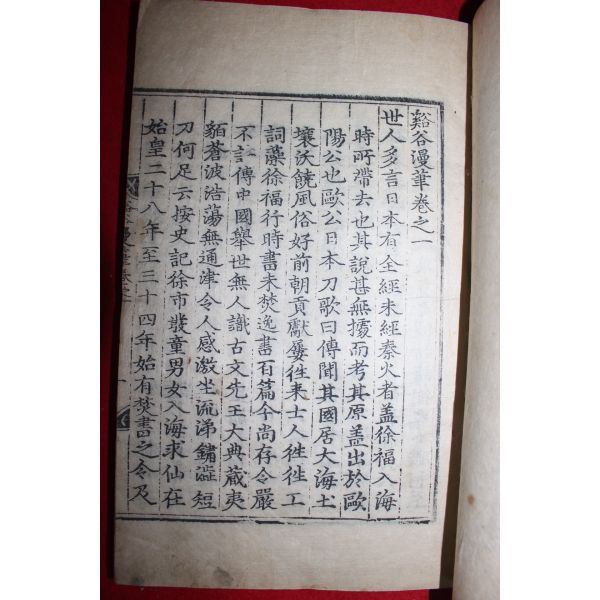 谿谷漫筆卷之一
世人多言日本有全經未經秦火者盖徐福入海
時所帶去也其說甚無據而考其原盖出於歐
陽公也歐公日本刀歌曰傳聞其國居大海土
壤沃饒風俗好前朝貢獻屢徃来士人徃徃工
詞藻徐福行時書未焚逸書百篇今尚存令嚴
不許傳中國舉世無人識古文先王大典藏夷
貊蒼波浩蕩無通津令人感激坐流涕鏽澁短
刀何足云按史記徐市發童男女入海求仙在
始皇二十八年至三十四年始有焚書之令及